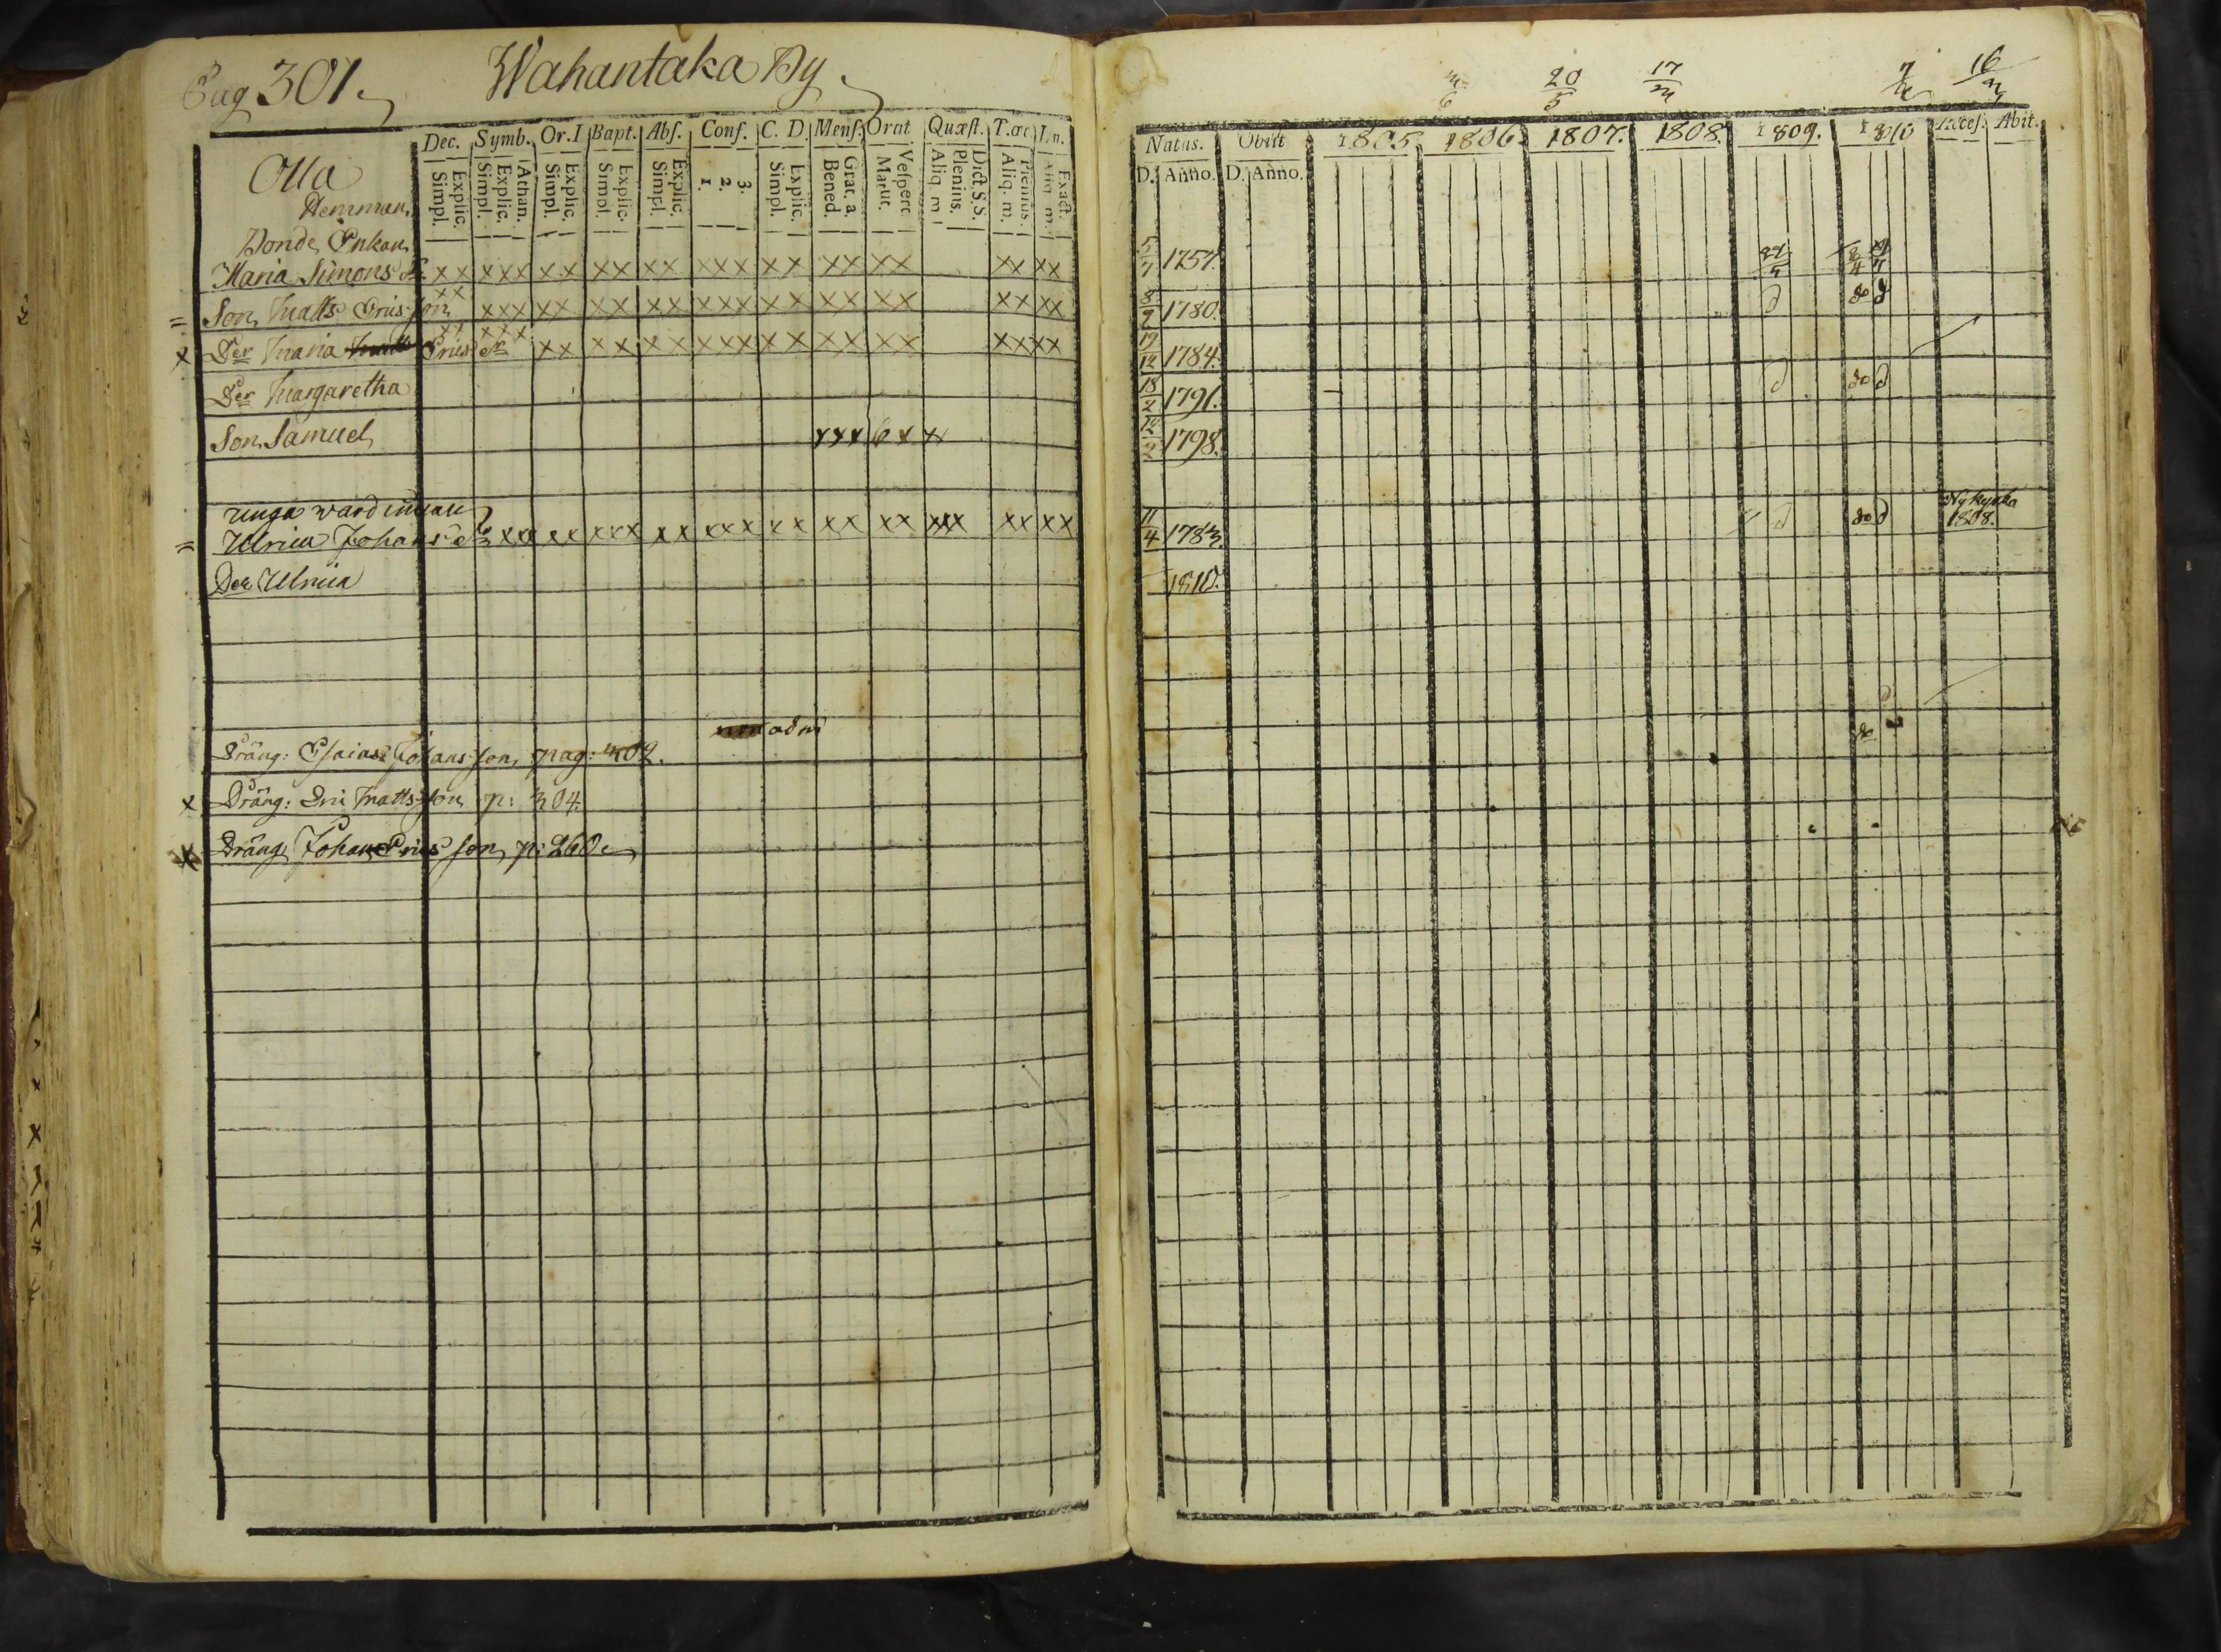 Pag 301. Wahantaka By.
Dec. Symb. Or. Bapt. Abſ. Conf. C. D. Menſ. Orat Quæſt. T.œc
Explic. Simpl. Athan. Explic. Simpl. Explic. Simpl. Explic. Simpl. Explic. Simpl. 3. 2. 1. Explic. Simpl. Grat. a. Bened. Veſpert. Matut. Dict. S.S. Plenius. Aliq. m. Plenius. Aliq. m. Exact. Aliq. m.
Olla
Hemman
Bonde Enkan
Maria Simons dr xx xxx xx xx xx xxx xx xx xx xx xx
Son Matts Erics son xx xxx xx xx xx xxx xx xx xx xx xx
x Der Maria Erics dr xx xxx xx xx xx xxx xx xx xx xx xx
Der Margaretha
Son Samuel xxx 6 x x
unga wardinnan
Ulrica Johans dr
Der Ulrica
Dräng: Esaias Johans son, pag: 302.
x Dräng: Eric Matts son p: 304.
x Dräng Johan Erics son, p: 260.
20/5 17/m
Natus. Obiit 1805. 1806. 1807. 1808. 1809. 1810 Acceſ. Abit.
D. Anno. D. Anno.
5/7 1757.
8/9 1780. d do d
19/12 1784.
18/2 1791. d do d
12/2 1798.
11/4 1783. d do d Nykyrka 1808.
1810.
do